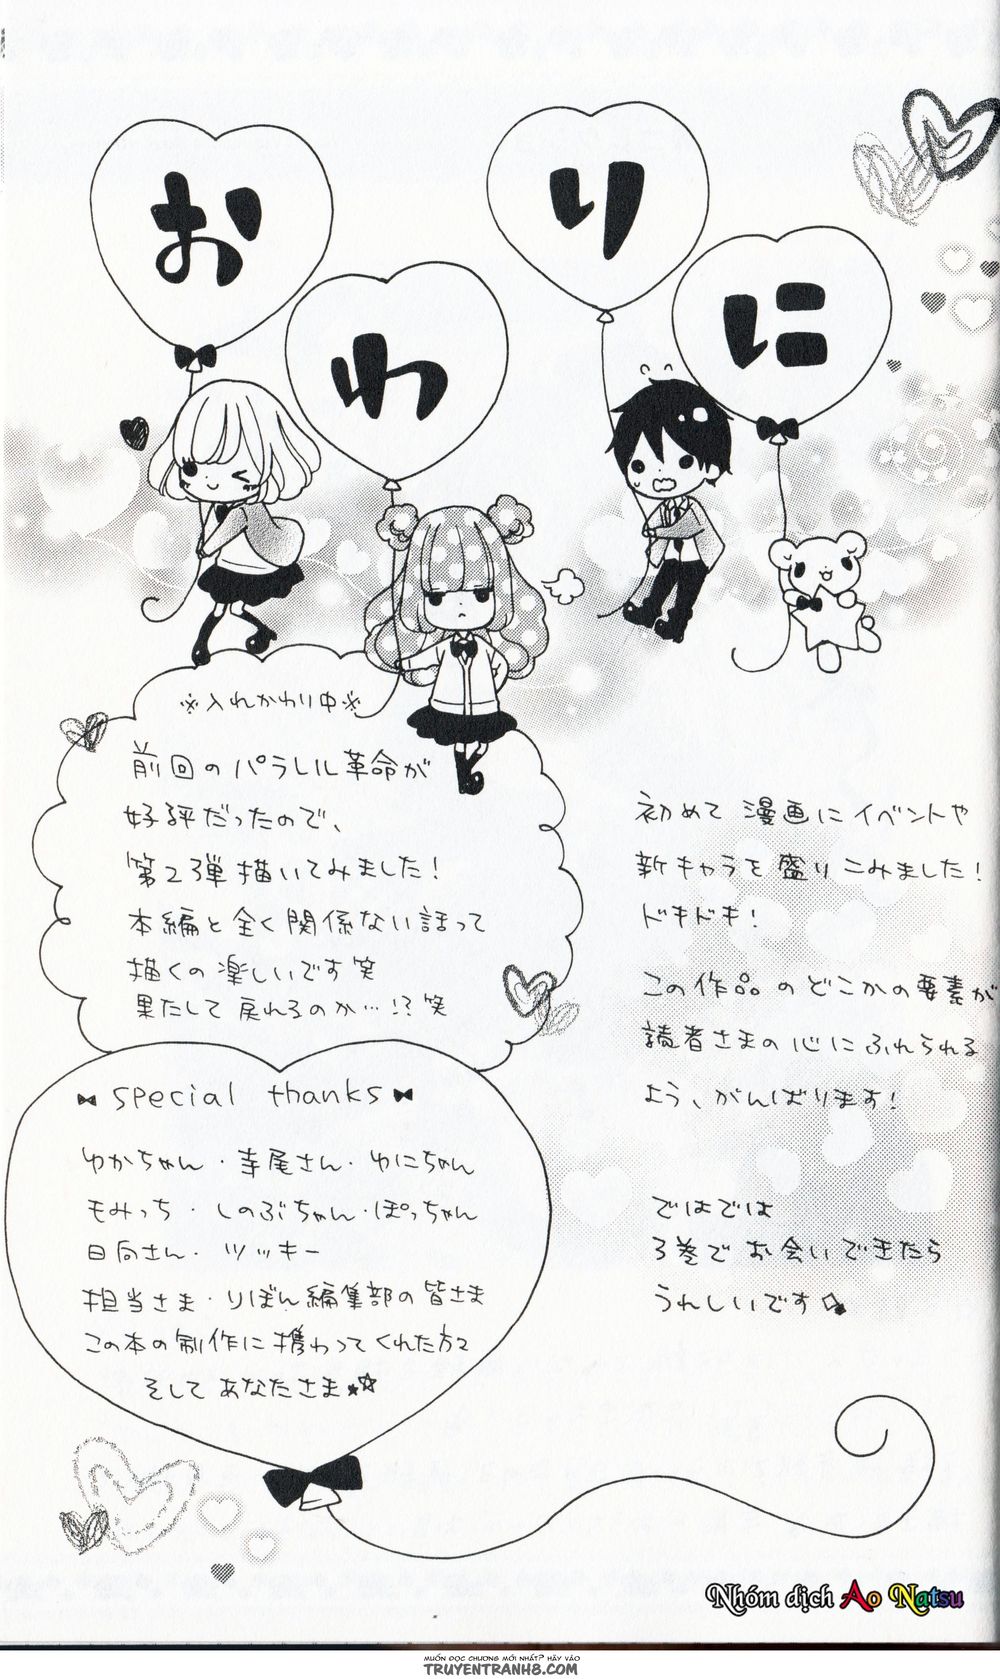 おわりに
※入れかわり中※
前回のパラレル革命が
好評だったので、
第2弾描いてみました!
本編と全く関係ない話って
描くの楽しいです笑
果たして戻れるのか…!?笑
初めて漫画にイベントや
新キャラを盛りこみました!
ドキドキ!
この作品のどこかの要素が
読者さまの心にふれられる
よう、がんばります!
ではでは
3巻でお会いできたら
うれしいです
special thanks
ゆかちゃん・寺尾さん・ゆにちゃん
もみっち・しのぶちゃん・ぽっちゃん
日向さん・ツッキー
担当さま・りぼん編集部の皆さま
この本の制作に携わってくれた方々
そしてあなたさま☆☆
Nhóm dịch Ao Natsu
MUỐN ĐỌC CHƯƠNG MỚI NHẤT? HÃY VÀO
TRUYENTRANH8.COM